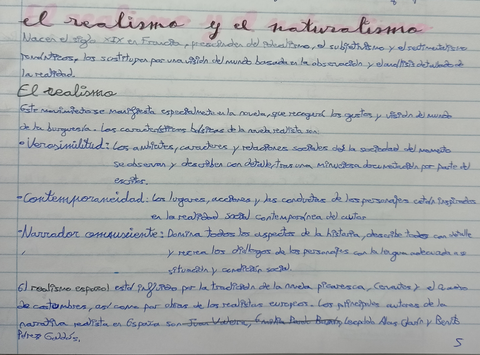 el realismo y el naturalismo
Nacen el siglo XIX en Francia, prescinden del idealismo, el subjetivismo y el sentimentalismo
románticos, los sustituyen por una visión del mundo basada en la observación y el análisis detallado de
la realidad.
El realismo
Este movimiento se manifiesta especialmente en la novela, que recogerá los gustos y visión del mundo
de la burguesía. Las características básicas de la novela realista son
• Verosimilitud: Los ambientes, caracteres y relaciones sociales de la sociedad del momento
se observan y describen con detalle, tras una minuciosa documentación por parte del
escritor.
- Contemporaneidad: Los lugares, acciones y las conductas de los personajes están inspirados
en la realidad social contemporánea del autor
- Narrador omnisciente: Domina todos los aspectos de la historia, describe todo con detalle
y recrea los diálogos de los personajes con la lengua adecuada a su
situación y condición social.
El realismo español está influido por la tradición de la novela picaresca, Cervantes y el cuadro
de costumbres, así como por obras de los realistas europeos. Los principales autores de la
narrativa realista en España son Juan Valera, Emilia Pardo Bazán, Leopoldo Alas Clarín y Benito
Pérez Galdós.
5